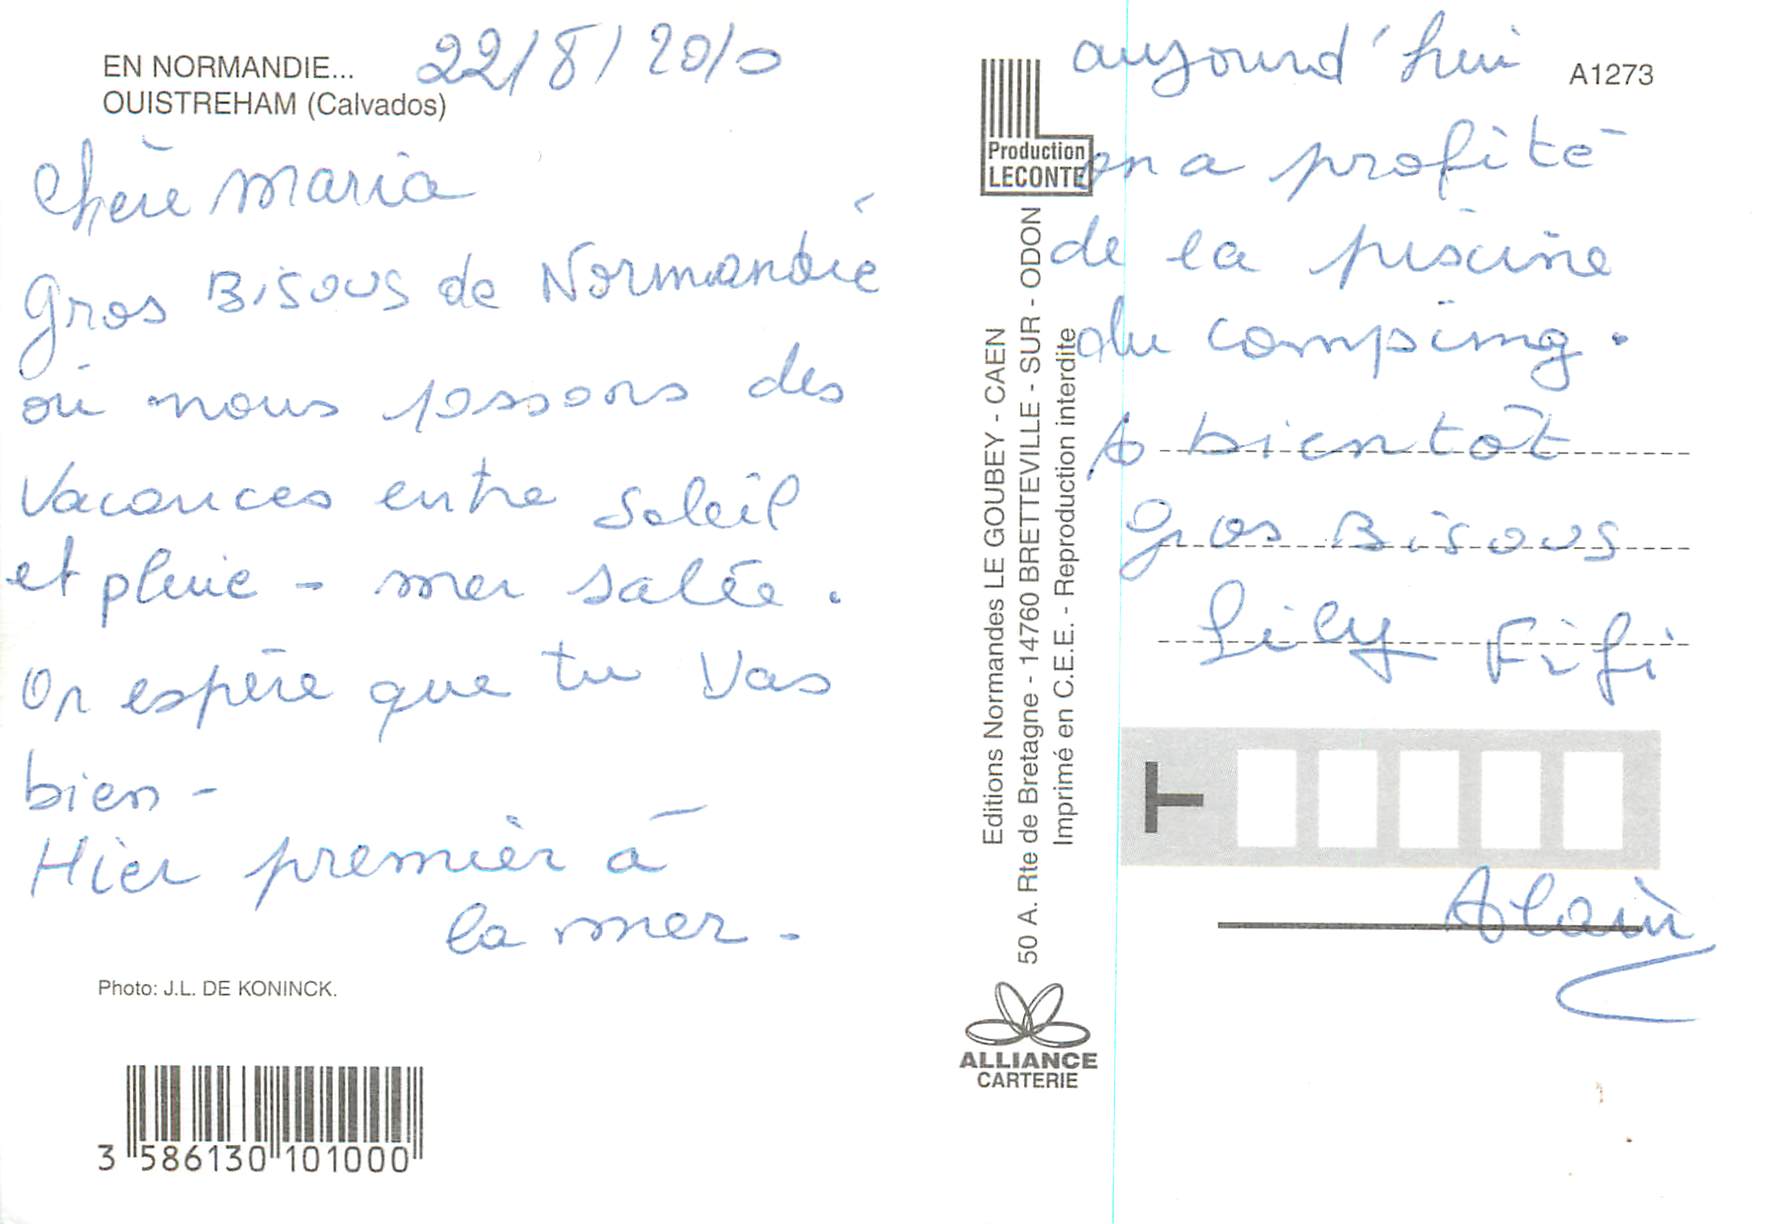 EN NORMANDIE...
OUISTREHAM (Calvados)
22/8/2010
Chère Maria
Gros Bisous de Normandie
où nous passons des
Vacances entre soleil
et pluie - mer salée.
On espère que tu vas
bien -
Hier premier à
la mer.
Photo: J.L. DE KONINCK.
3 586130 101000
Production
LECONTE
Editions Normandes LE GOUBEY - CAEN
50 A. Rte de Bretagne - 14760 BRETTEVILLE - SUR - ODON
Imprimé en C.E.E. - Reproduction interdite
ALLIANCE
CARTERIE
A1273
aujourd'hui
on a profité
de la piscine
du camping.
A bientôt
Gros Bisous
Lily Fifi
T
Alain